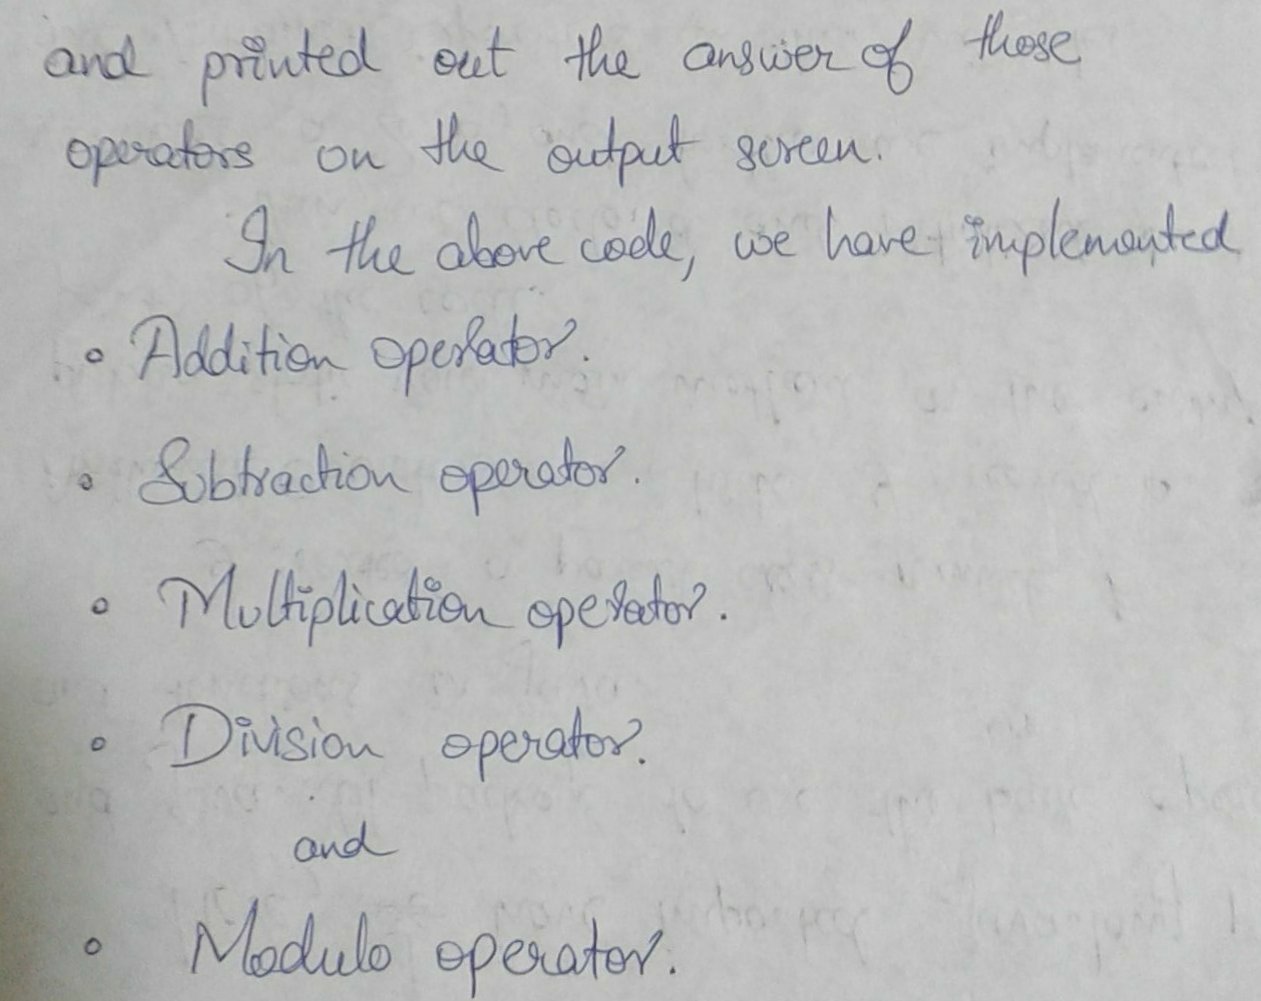 and printed out the answer of those
operators on the output screen.
In the above code, we have implemented
• Addition operator.
• Subtraction operator.
• Multiplication operator.
• Division operator.
and
• Modulo operator.